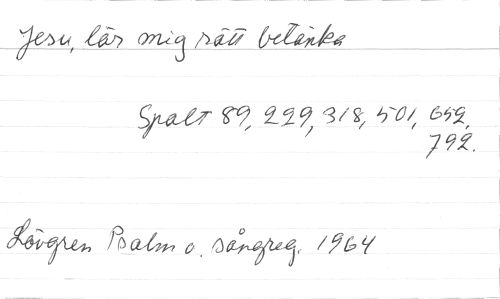 Jesu, lär mig rätt betänka
Spalt 89, 229, 318, 501, 652,
792.
Lövgren Psalm o. sångreg. 1964